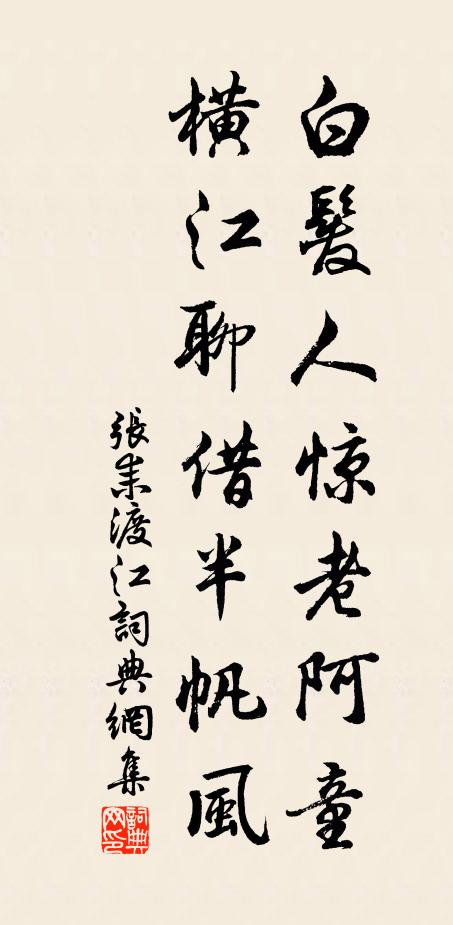 白髮人惊老阿童
橫江聊借半帆風
張耒渡江詞典網集
詞典网印